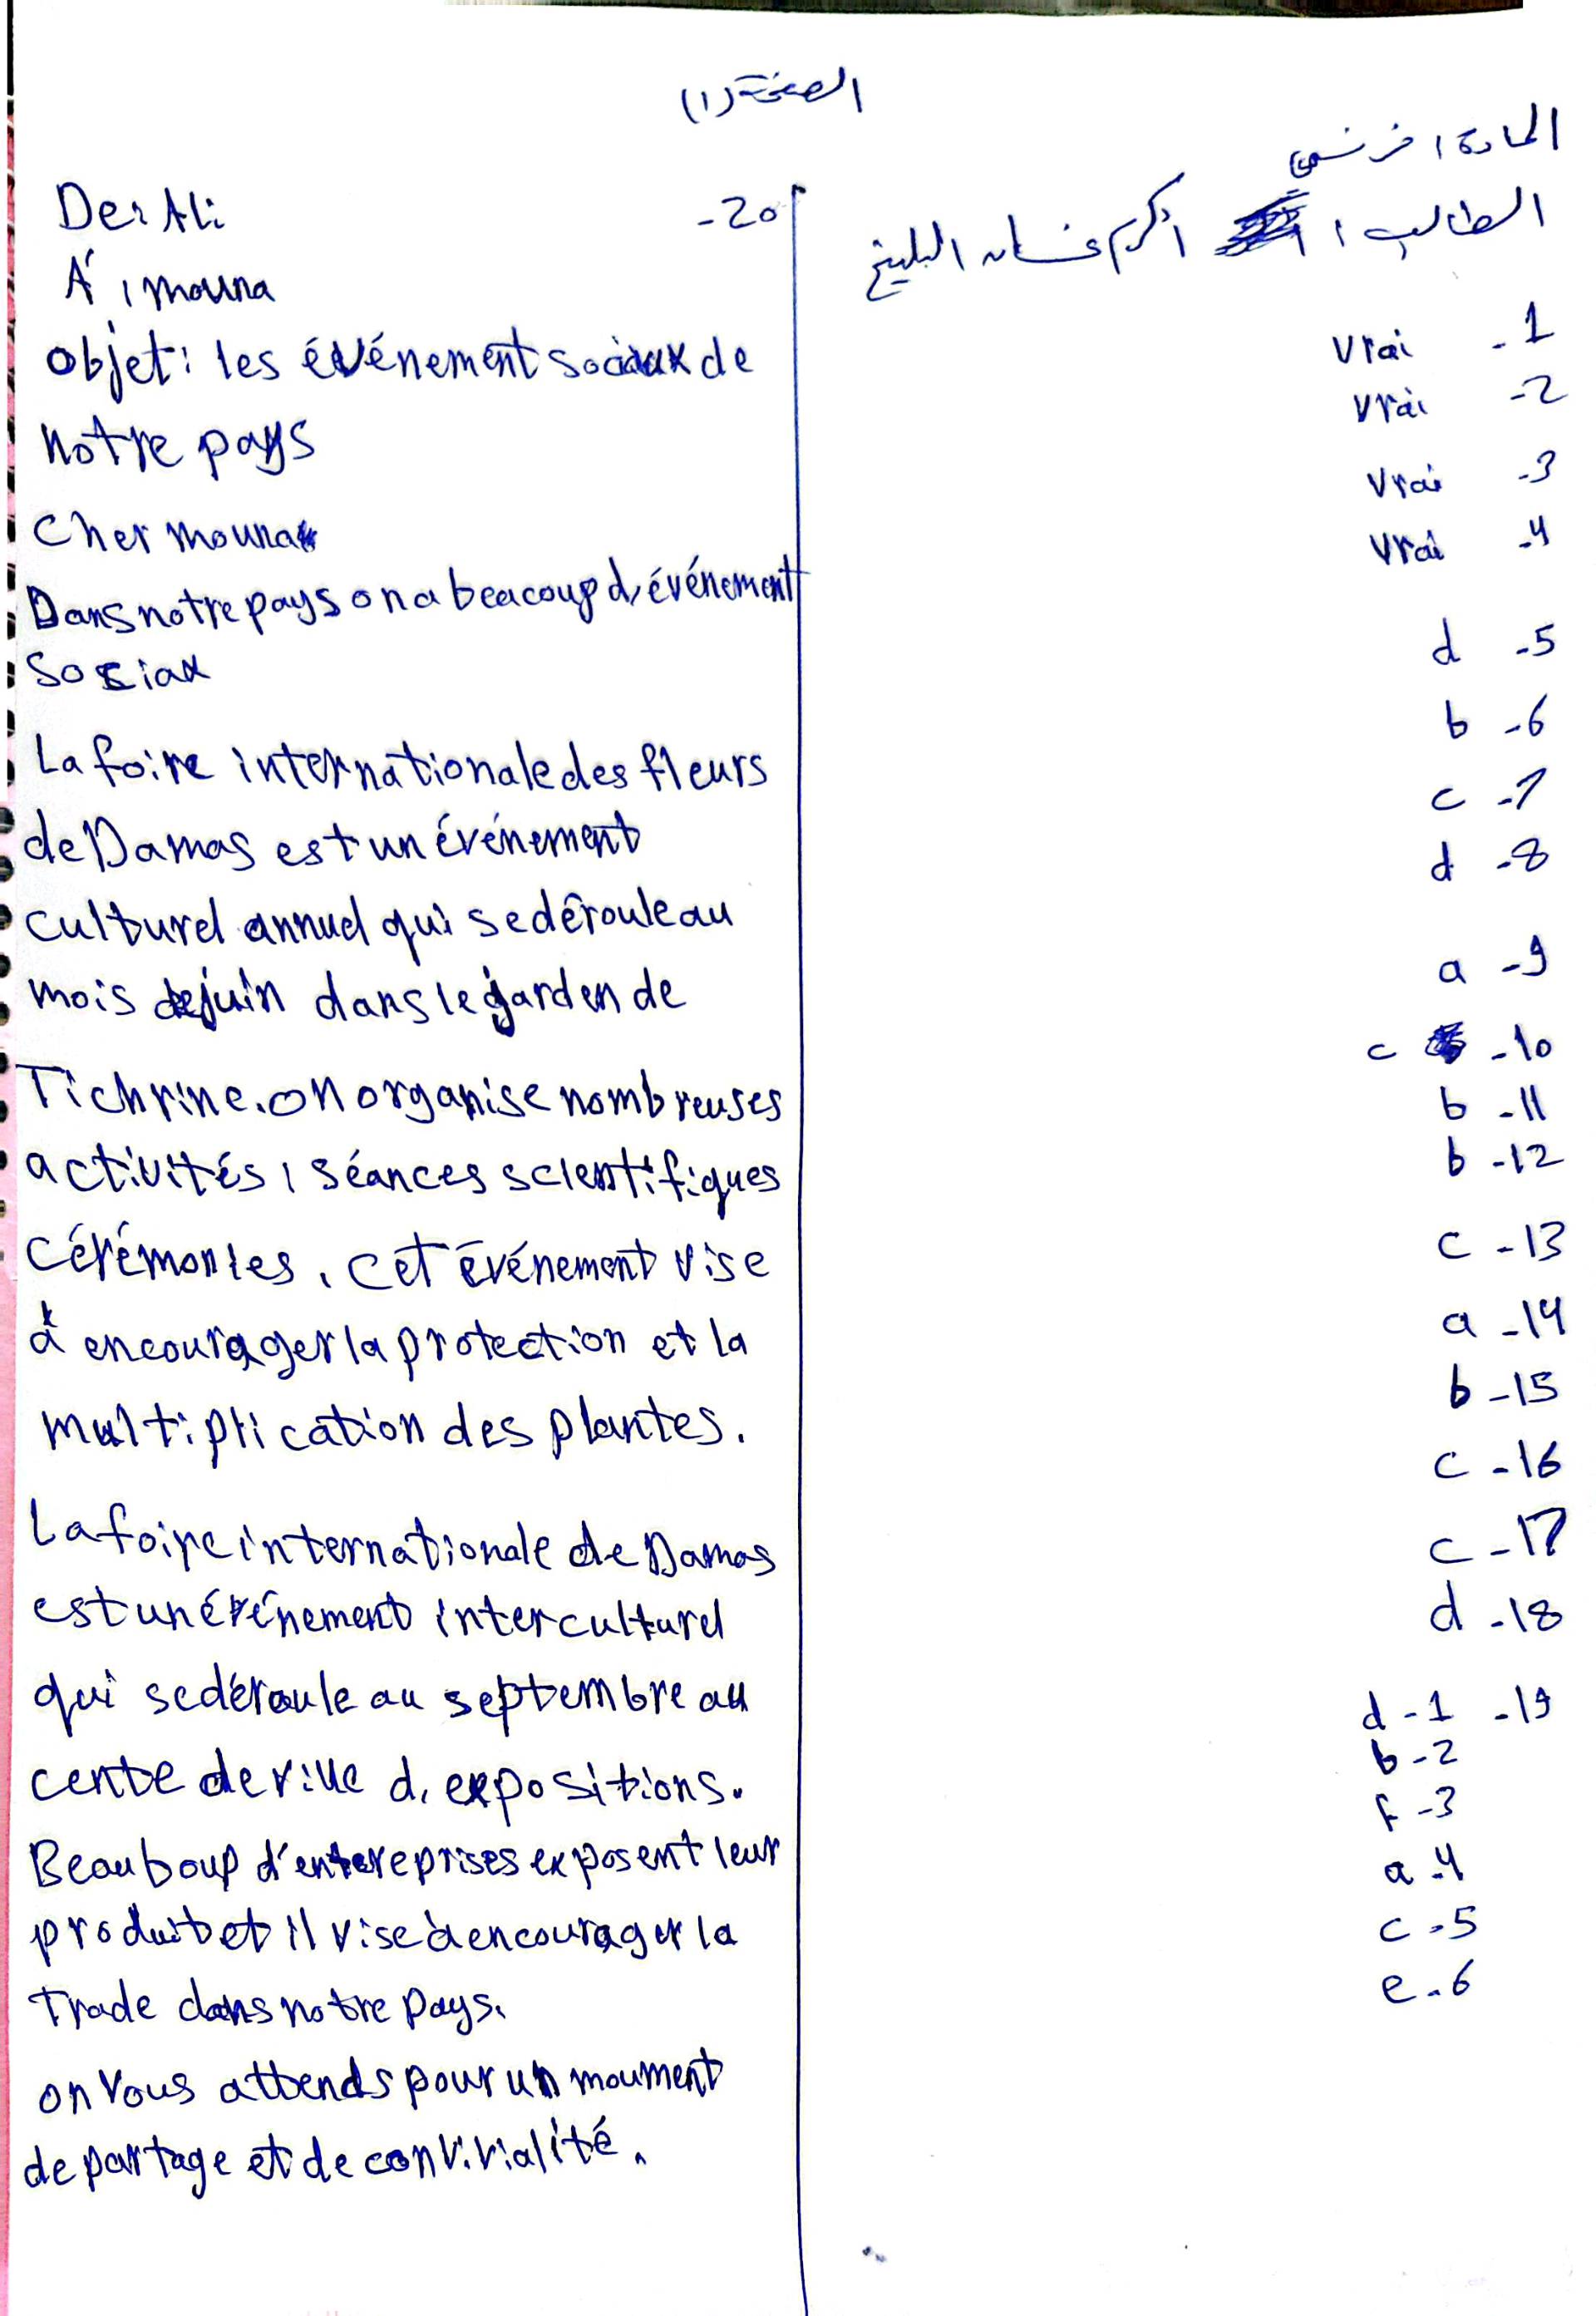 الصفحة (١)
المادة: فرنسي
الطالب: اكرم غسان البليخ
1- Vrai
2- Vrai
3- Vrai
4- Vrai
5- d
6- b
7- c
8- d
9- a
10- c
11- b
12- b
13- c
14- a
15- b
16- c
17- c
18- d
19- 1- d
2- b
3- f
4- a
5- c
6- e
20-
De: Ali
À : mouna
objet: les événement sociaux de
notre pays
Cher mouna
Dans notre pays on a beacoup d'événement
sociax
La foire internationale des fleurs
de Damas est un événement
culturel annuel qui se déroule au
mois de juin dans le jarden de
Tichrine. on organise nombreuses
activités : séances scientifiques
cérémonies. cet événement vise
à encourager la protection et la
multiplication des plantes.
La foire internationale de Damas
est un événement interculturel
qui se déroule au septembre au
cente de ville d'expositions.
Beauboup d'entereprises exposent leur
produit et il vise à encourager la
Trade dans notre pays.
on vous attends pour un moument
de partage et de convivialité.